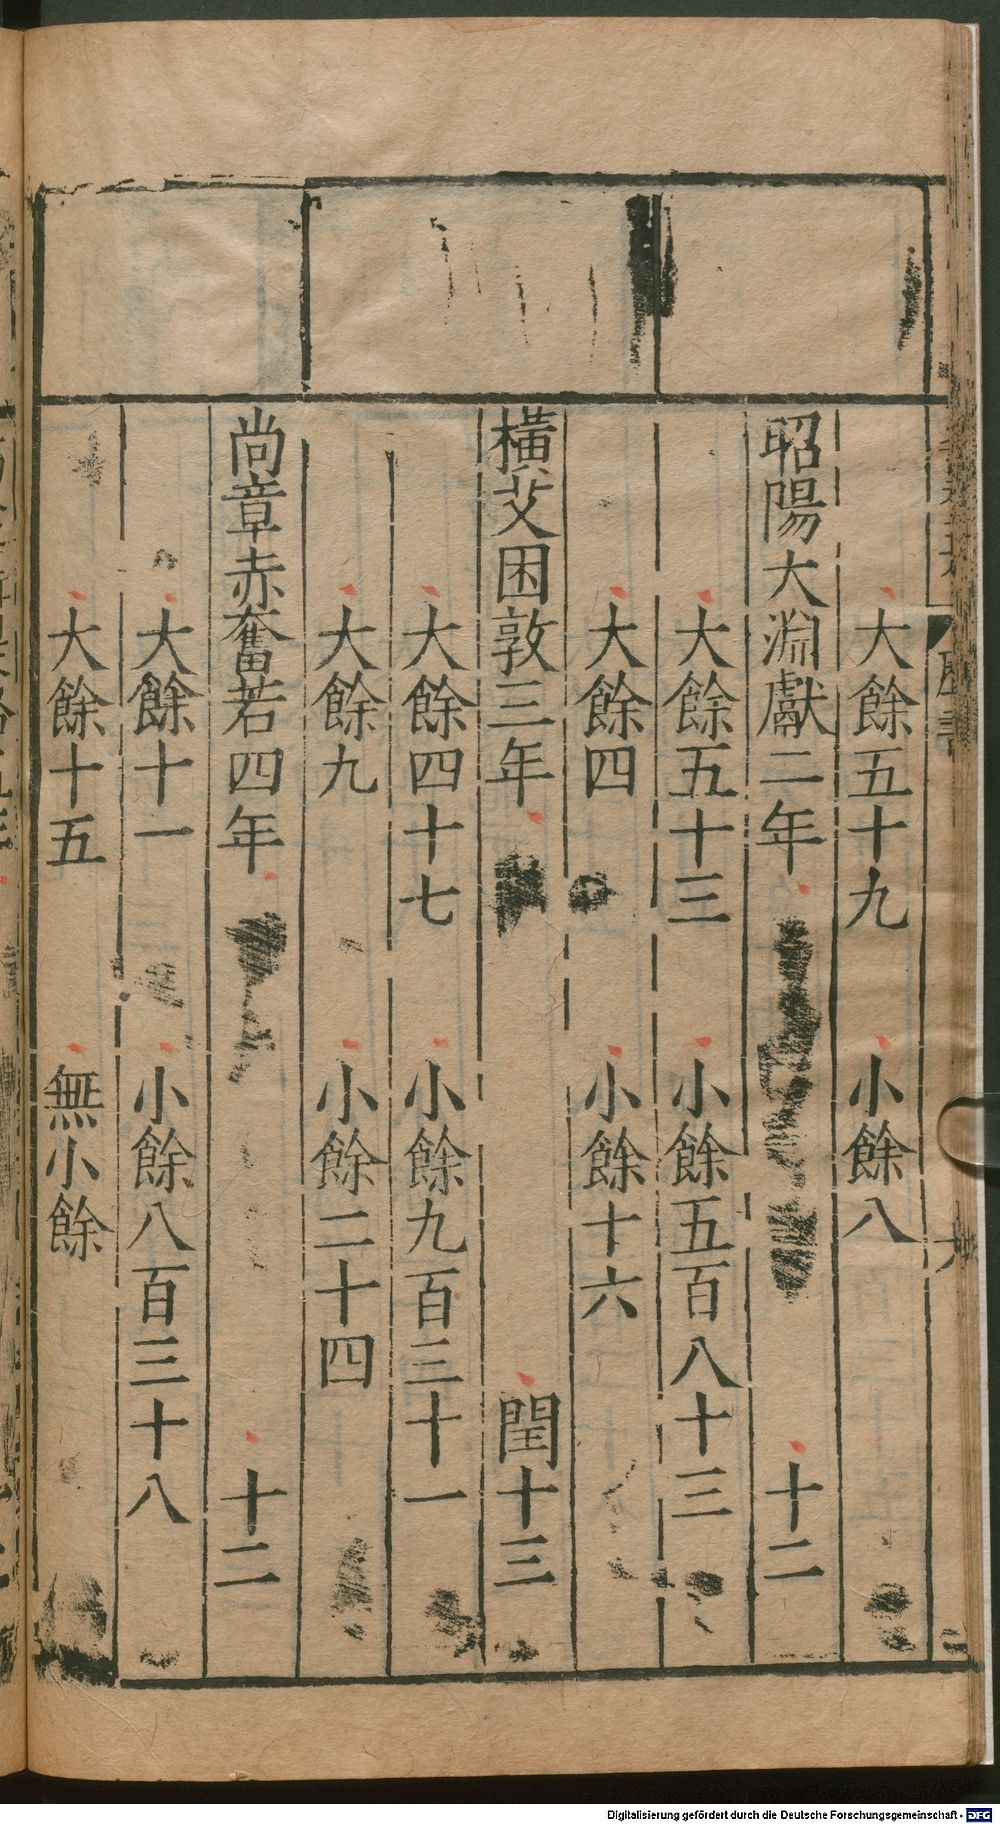 大餘五十九 小餘八
昭陽大淵獻二年 十二
大餘五十三 小餘五百八十三
大餘四 小餘十六
橫艾困敦三年 閏十三
大餘四十七 小餘九百三十一
大餘九 小餘二十四
尚章赤奮若四年 十二
大餘十一 小餘八百三十八
大餘十五 無小餘
Digitalisierung gefördert durch die Deutsche Forschungsgemeinschaft - DFG